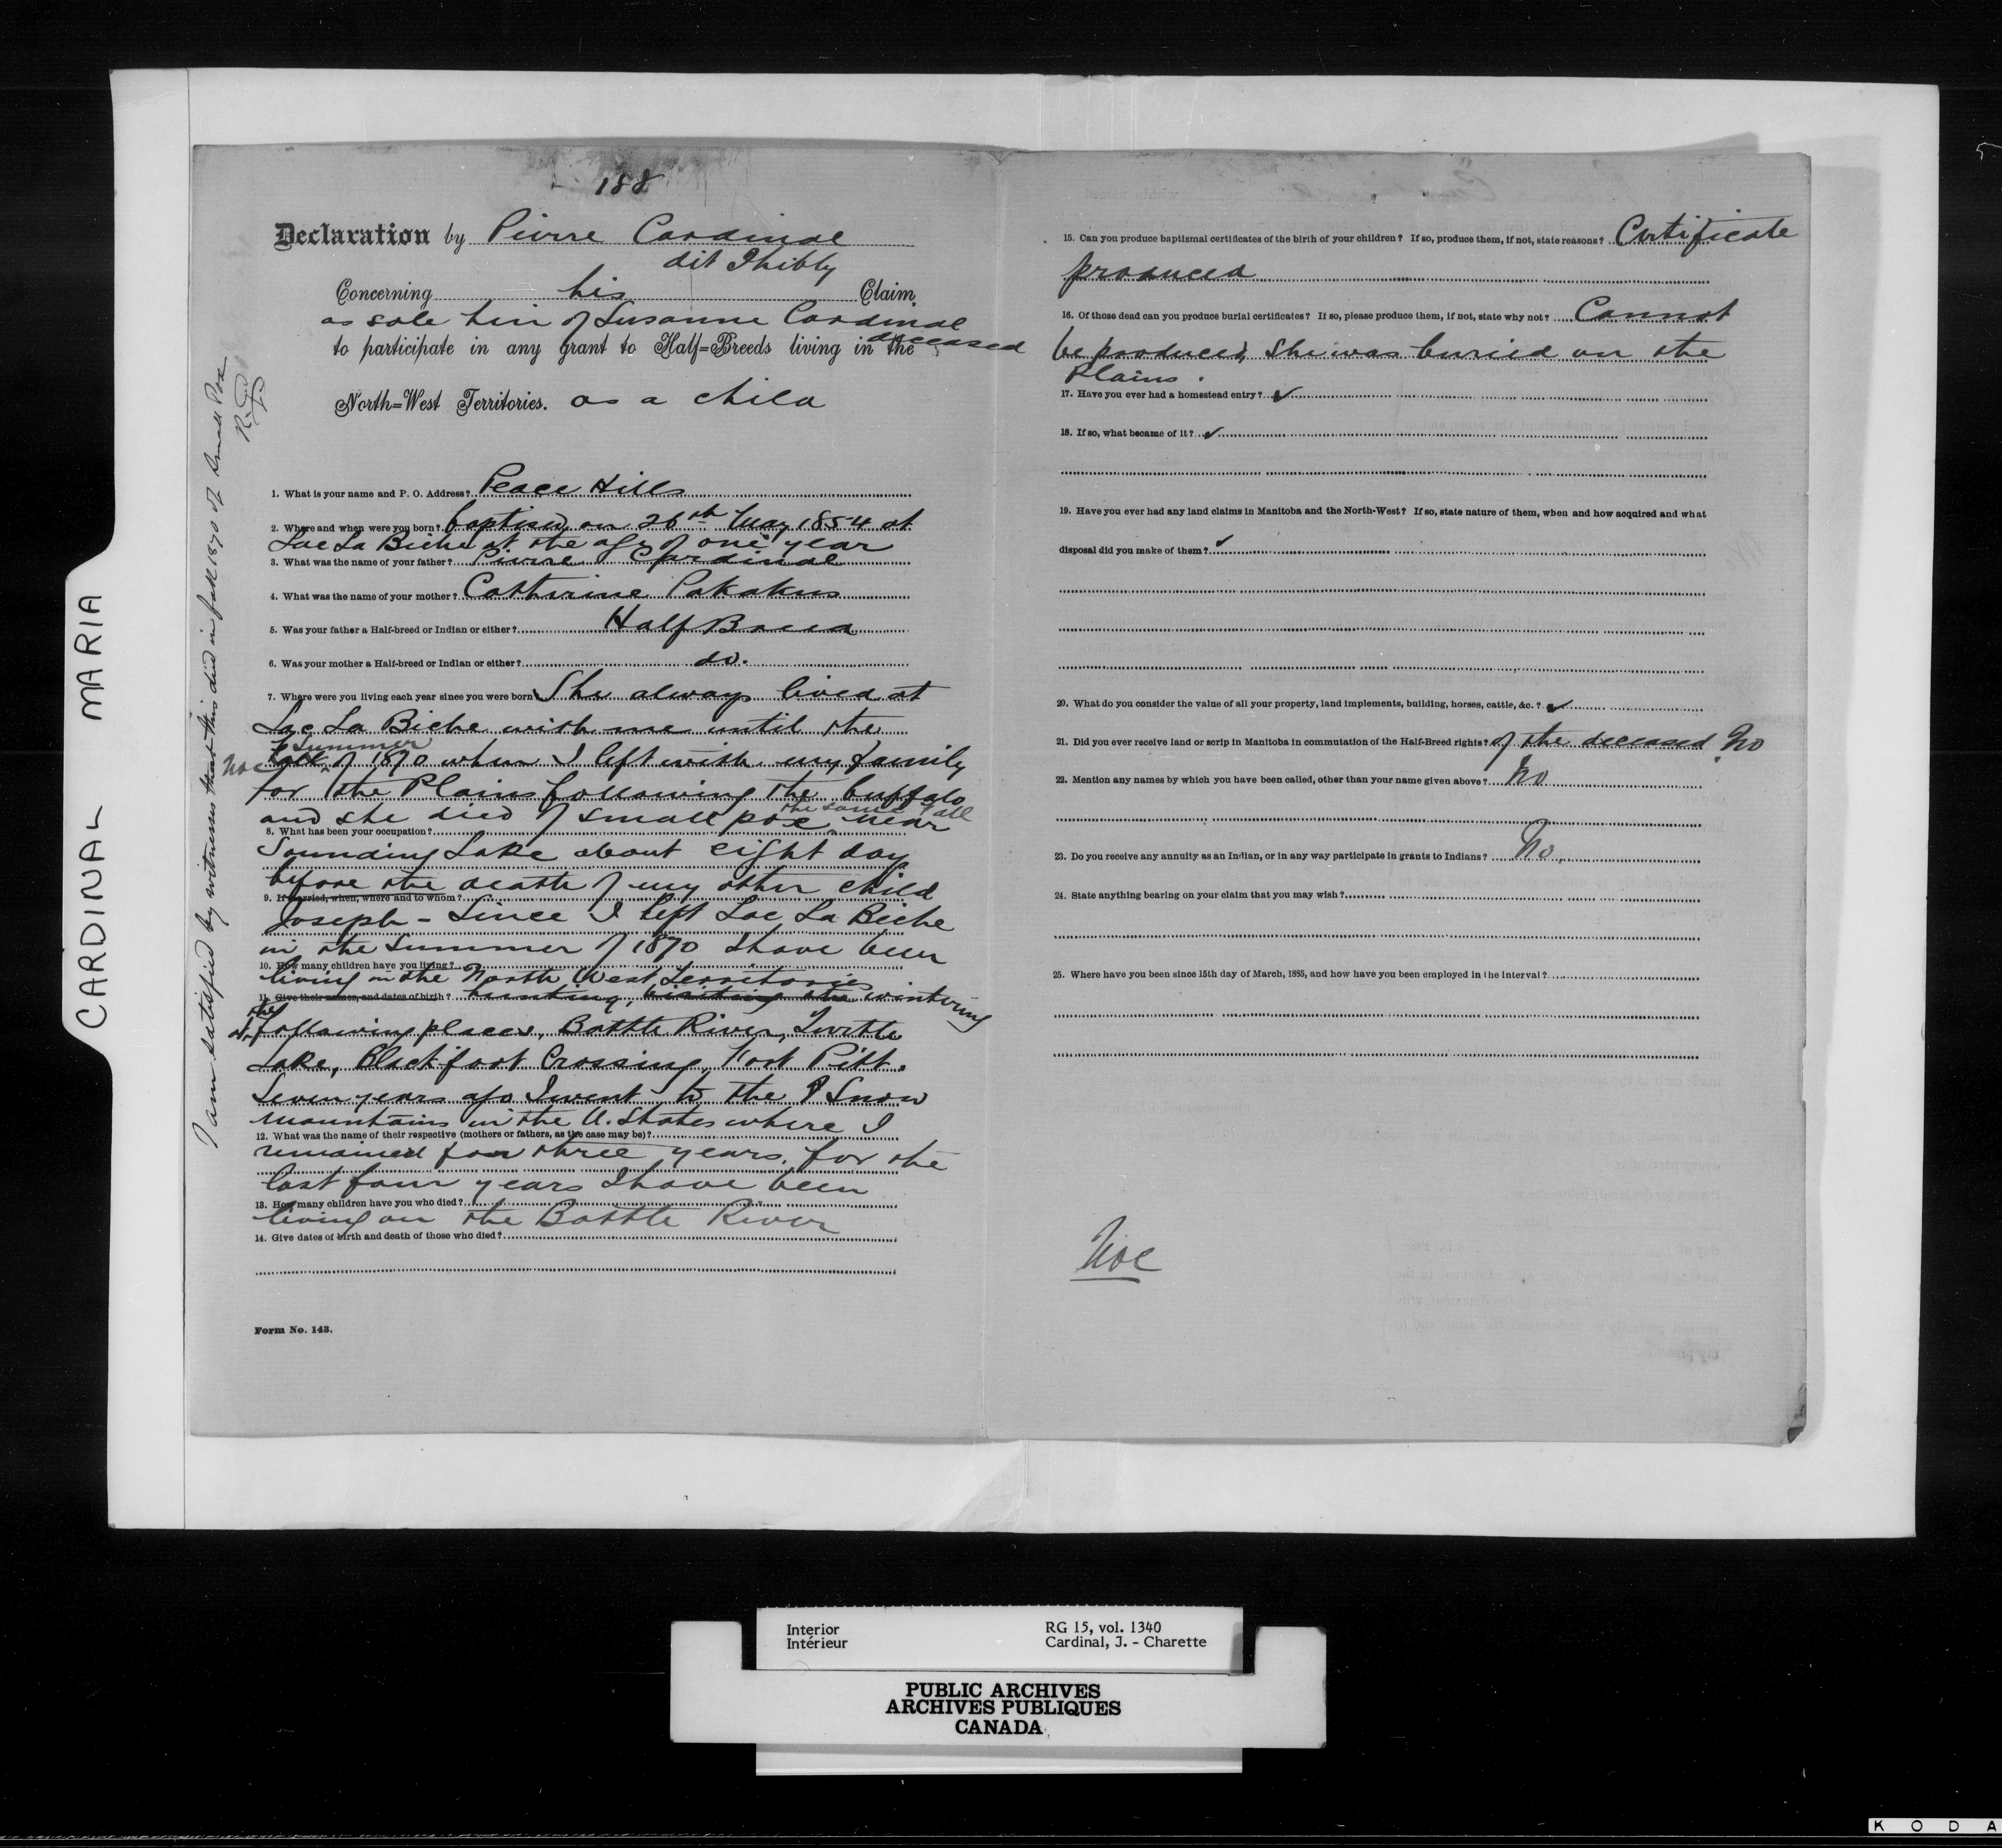 188
Declaration by Pierre Cardinal
dit Thibly
Concerning his Claim
as sole heir of Susanne Cardinal
deceased
to participate in any grant to Half=Breeds living in the
North=West Territories. as a child
1. What is your name and P. O. Address? Peace Hills
2. Where and when were you born? baptised on 26th May 1854 at
Lac La Biche at the age of one year
3. What was the name of your father? Pierre Cardinal
4. What was the name of your mother? Catherine Pakakus
5. Was your father a Half-breed or Indian or either? Half Breed
6. Was your mother a Half-breed or Indian or either? do.
7. Where were you living each year since you were born? She always lived at
Lac La Biche with me until the
Summer
Noe of 1870 when I left with my family
for the Plains following the buffalo
the same fall
and she died of small pox near
8. What has been your occupation?
Sounding Lake about eight days
before the death of my other child
9. If married, when, where and to whom?
Joseph - Since I left Lac La Biche
in the Summer of 1870 I have been
10. How many children have you living?
living in the North West Territories
11. Give their names, and dates of birth? hunting, wintering
at the following places, Battle River, Turtle
Lake, Blackfoot Crossing, Fort Pitt.
Seven years ago I went to the Snow
mountains in the U. States where I
12. What was the name of their respective (mothers or fathers, as the case may be)?
remained for three years. for the
last four years I have been
13. How many children have you who died?
living on the Battle River
14. Give dates of birth and death of those who died?
Form No. 143.
I am satisfied by witnesses that this died in fall 1870 of Small Pox
15. Can you produce baptismal certificates of the birth of your children? If so, produce them, if not, state reasons? Certificate
produced
16. Of those dead can you produce burial certificates? If so, please produce them, if not, state why not? Cannot
be produced, she was buried on the
Plains.
17. Have you ever had a homestead entry? ✓
18. If so, what became of it? ✓
19. Have you ever had any land claims in Manitoba and the North-West? If so, state nature of them, when and how acquired and what
disposal did you make of them? ✓
20. What do you consider the value of all your property, land implements, building, horses, cattle, &c.? ✓
21. Did you ever receive land or scrip in Manitoba in commutation of the Half-Breed rights? of the deceased No
22. Mention any names by which you have been called, other than your name given above? No
23. Do you receive any annuity as an Indian, or in any way participate in grants to Indians? No.
24. State anything bearing on your claim that you may wish?
25. Where have you been since 15th day of March, 1885, and how have you been employed in the interval?
Noe
CARDINAL MARIA
Interior
Intérieur
RG 15, vol. 1340
Cardinal, J. - Charette
PUBLIC ARCHIVES
ARCHIVES PUBLIQUES
CANADA
K O D A